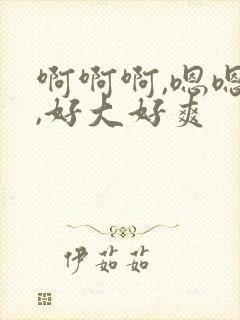 啊啊啊,嗯嗯
,好大好爽
伊茹茹